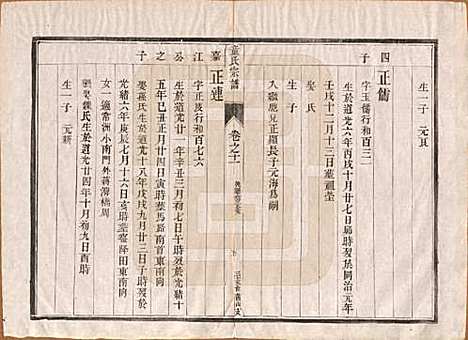 生一子 元頁
四 正儒
子 字玉儒行和百三一
生於道光六年丙戌十月廿七日卯時歿於同治元年
壬戌十二月十三日葬祖塋
娶 氏
入繼胞兄正顯長子元海爲嗣
童氏宗譜 卷之十一
嘉 正連
江 字正茂行和百七六
公 生於道光廿一年辛丑三月初七日子時歿於光緒十
之 五年己丑正月廿四日寅時葬馬路南首東南向
子 娶孫氏生於道光十八年戊戌九月廿三日子時歿於
光緒六年庚辰七月十六日亥時葬 降田東南向
女一適常洲小南門外蔣灣橋周
繼娶 氏生於道光廿四年十月初九日酉時
生一子 元耕